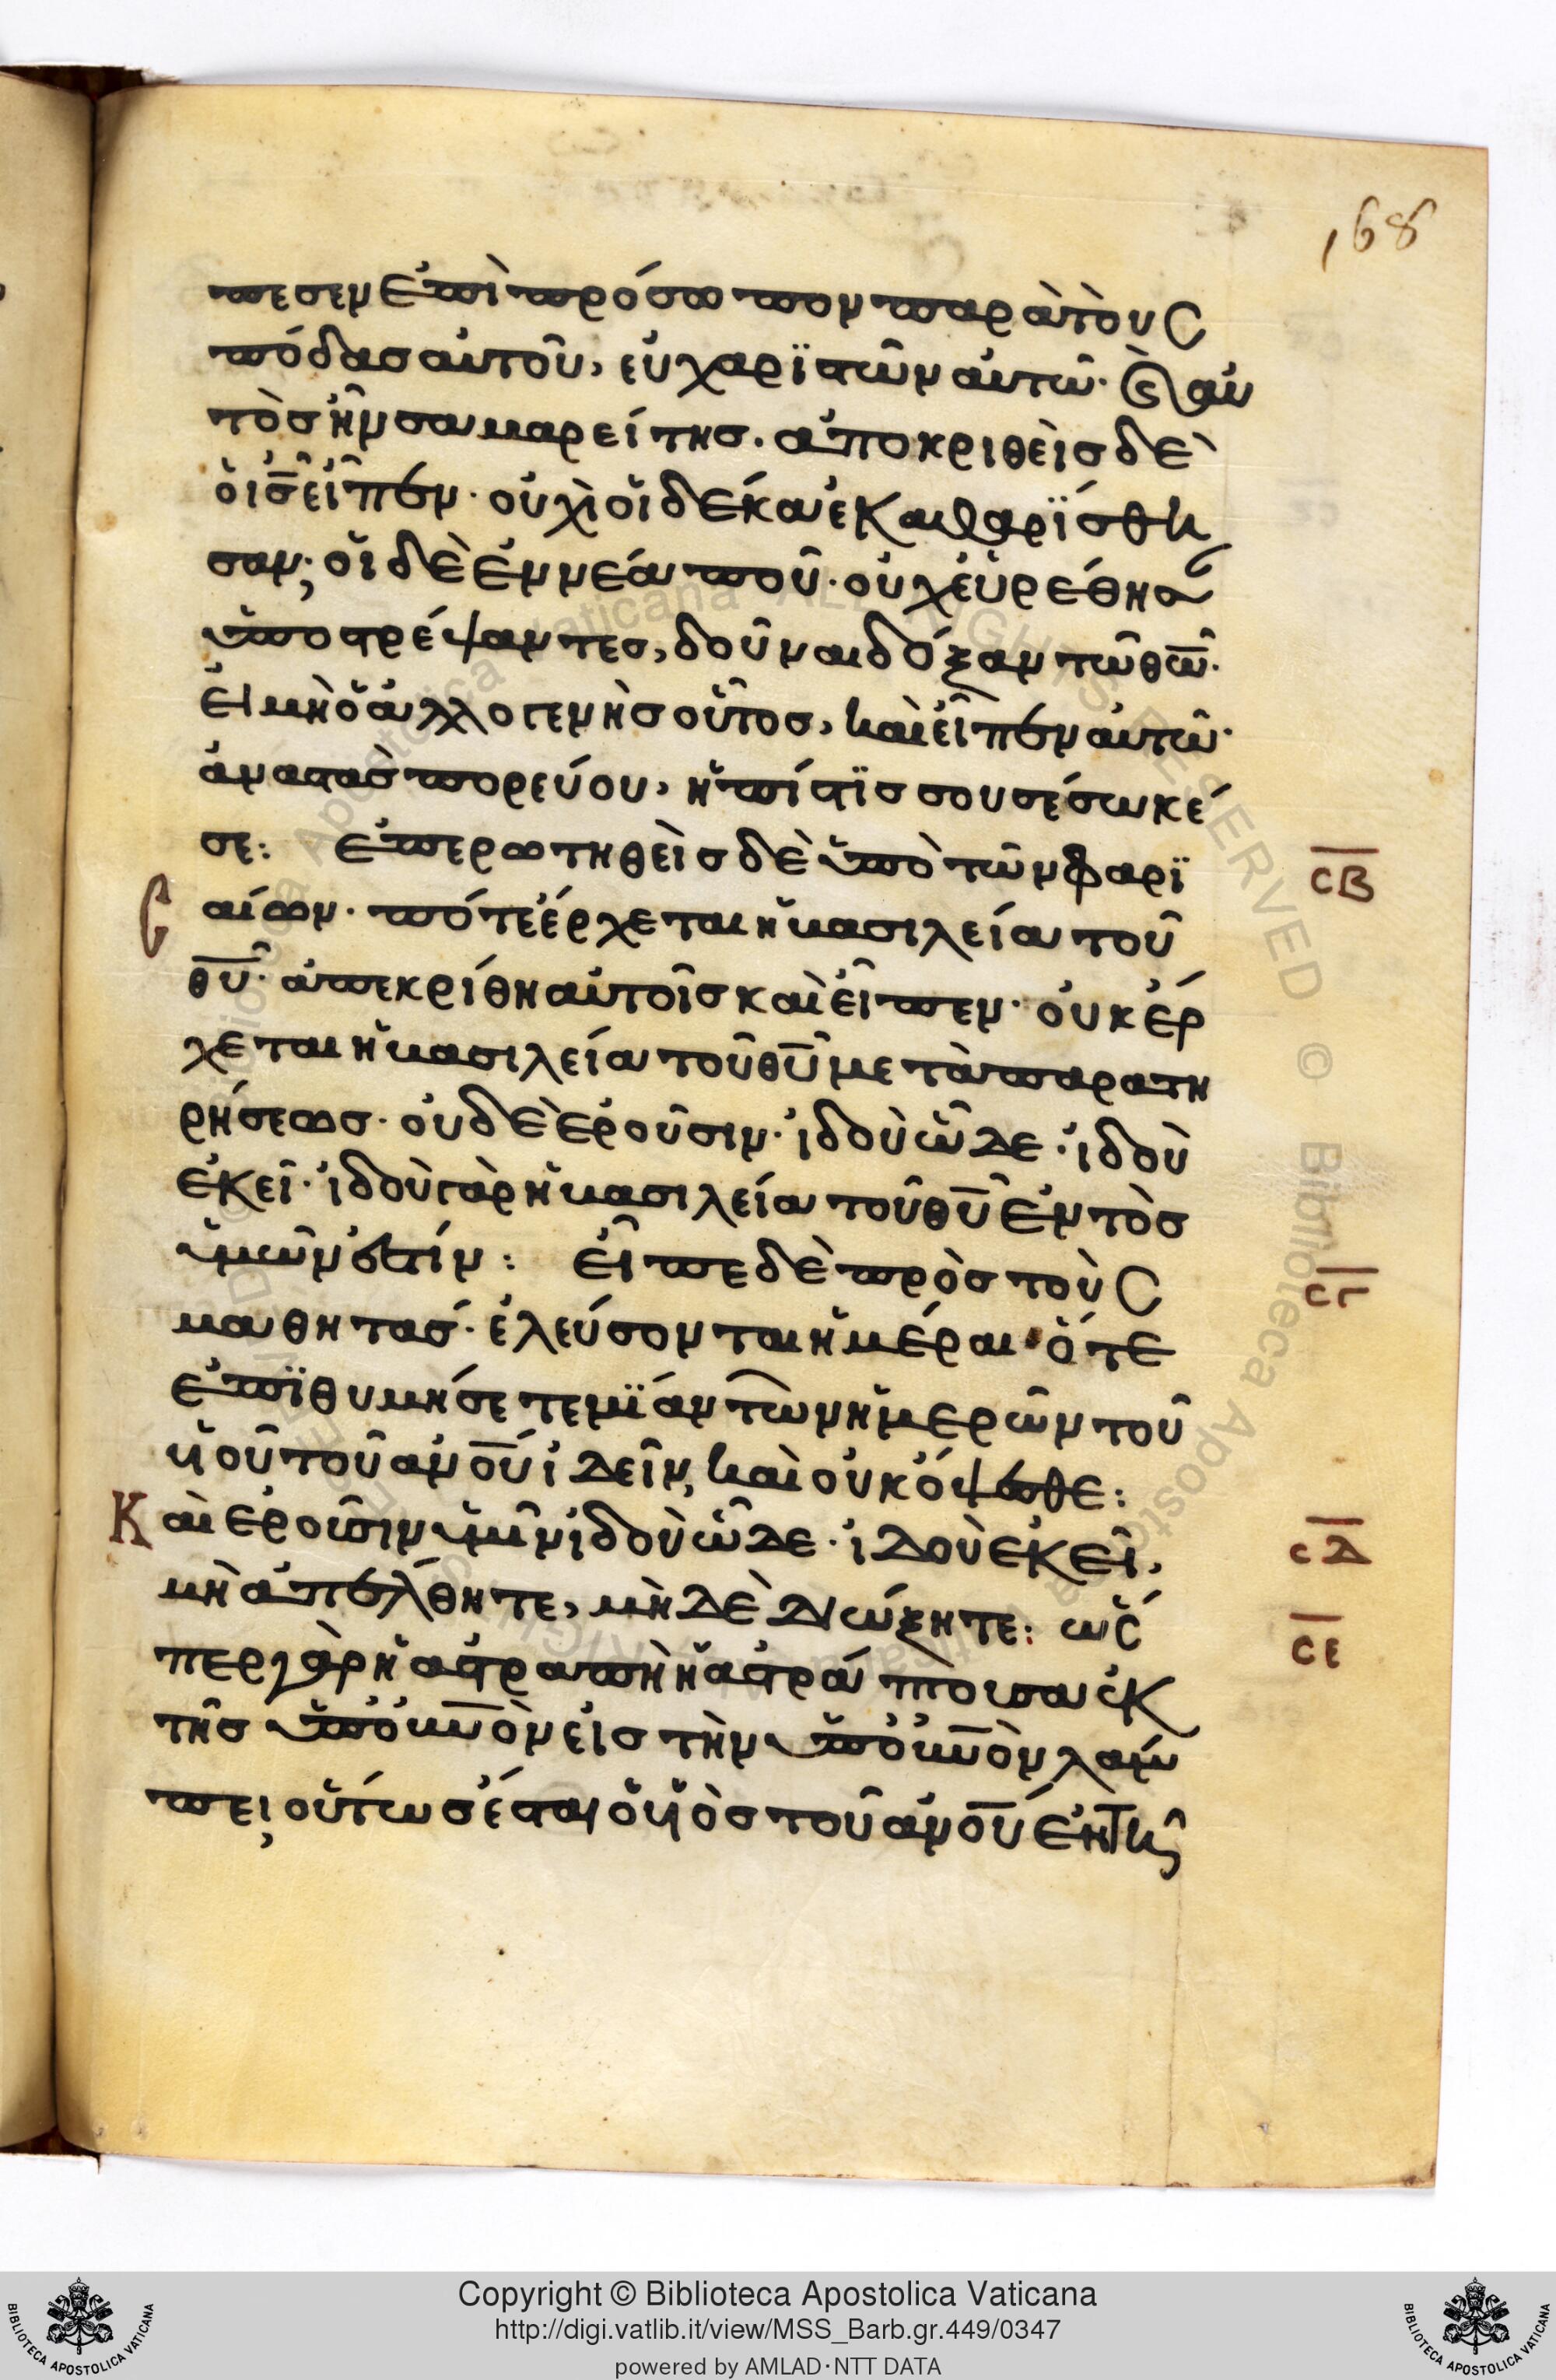 168
πεσεν ἐπὶ πρόσωπον παρὰ τοὺς
πόδας αὐτοῦ, εὐχαριστῶν αὐτῶ· καὶ αὐ
τὸς ἦν σαμαρείτης. ἀποκριθεὶς δὲ
ὁ ι̅ς̅ εἶπεν· οὐχὶ οἱ δέκα ἐκαθαρΐσθη
σαν; οἱ δὲ ἐννέα ποῦ· οὐχ εὑρέθησαν
ὑποστρέψαντες, δοῦναι δόξαν τῶ θ̅ω̅·
εἰ μὴ ὁ ἀλλογενὴς οὗτος, καὶ εἶπεν αὐτῶ·
ἀναστὰς πορεύου, ἡ πίστϊς σου σέσωκέ
σε: ἐπερωτηθεὶς δὲ ὑπὸ τῶν φαρϊ
σαίων· πότε ἔρχεται ἡ βασιλεία τοῦ
θ̅υ̅· ἀπεκρίθη αὐτοῖς καὶ εἶπεν· οὐκ ἔρ
χεται ἡ βασιλεία τοῦ θ̅υ̅ μετὰ παρατη
ρήσεως· οὐδὲ ἐροῦσιν· ἰδοὺ ὧδε· ἰδοὺ
ἐκεῖ· ἰδοὺ γὰρ ἡ βασιλεία τοῦ θ̅υ̅ ἐντὸς
ὑμῶν ἐστίν: εἶπε δὲ πρὸς τοὺς
μαθητάς· ἐλεύσονται ἡμέραι ὅτε
ἐπϊθυμήσετε μΐαν τῶν ἡμερῶν τοῦ
υἱοῦ τοῦ ἀν̅ο̅υ̅ ἰδεῖν, καὶ οὐκ ὄψεσθε:
Καὶ ἐροῦσιν ὑμῖν ἰδοὺ ὧδε· ἰδοὺ ἐκεῖ,
μὴ ἀπέλθητε, μὴ δὲ διώξητε: ὥς
περ γὰρ ἡ ἀστραπὴ ἡ ἀστράπτουσα ἐκ
τῆς ὑπὸ ο̅υ̅ν̅ὸν εἰς τὴν ὑπὸ ο̅υ̅ν̅ὸν λάμ
πει, οὕτως ἔσται ὁ υἱὸς τοῦ ἀν̅ο̅υ̅ ἐν τῆ
Ϲ̅Β̅
Ϲ̅Γ̅
Ϲ̅Δ̅
Ϲ̅Ε̅
Copyright © Biblioteca Apostolica Vaticana
http://digi.vatlib.it/view/MSS_Barb.gr.449/0347
powered by AMLAD·NTT DATA
BIBLIOTECA APOSTOLICA VATICANA
BIBLIOTECA APOSTOLICA VATICANA